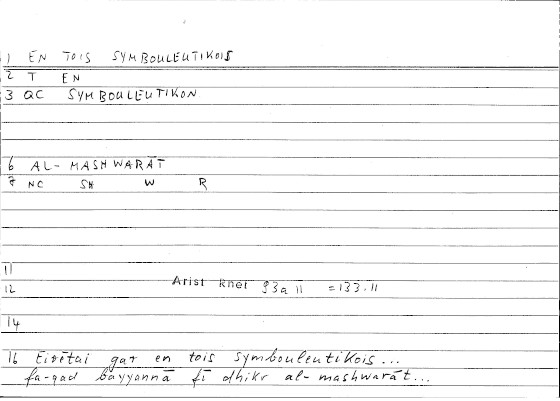 1 EN TOIS SYMBOULEUTIKOIS
2 T EN
3 QC SYMBOULEUTIKON
6 AL-MASHWARĀT
7 NC SH W R
11
12 Arist Rhet 93a11 =133.11
14
16 Eirētai gar en tois symbouleutikois...
fa-qad bayyannā fī dhikr al-mashwarāt...